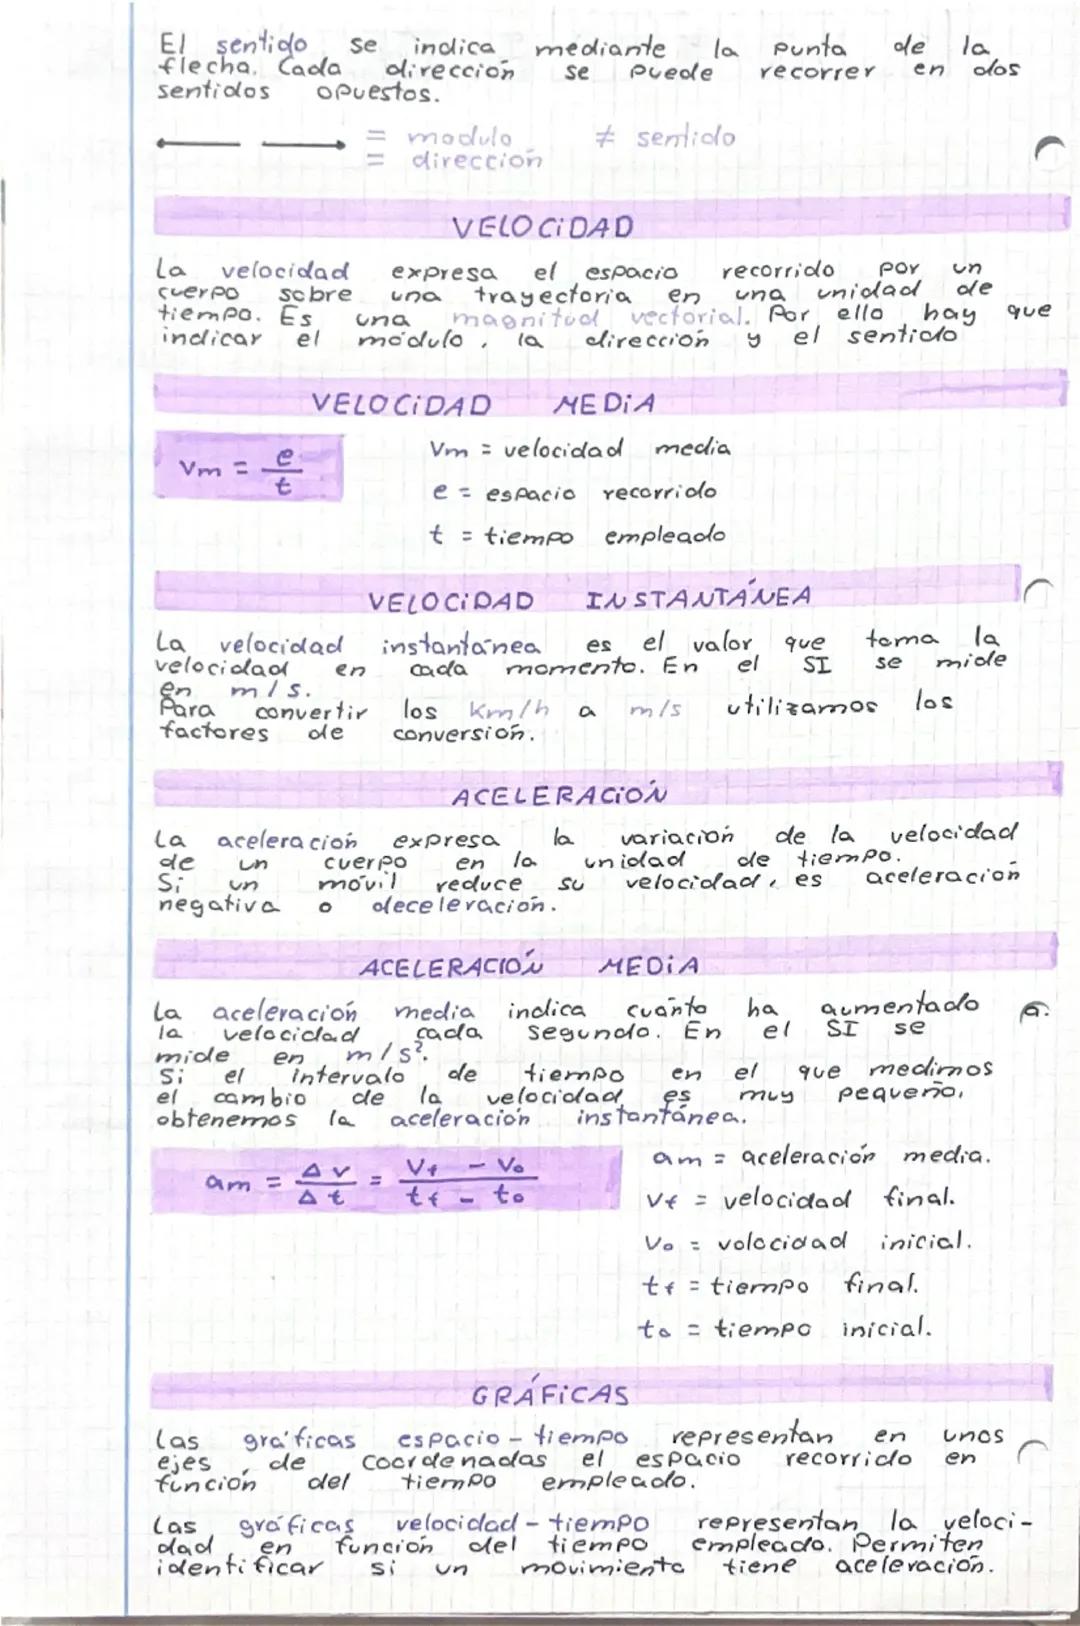 El sentido se indica mediante la punta de la
flecha. Cada dirección se puede recorrer en dos
sentidos opuestos.
= modulo ≠ sentido
= dirección
VELOCIDAD
La velocidad expresa el espacio recorrido por un
cuerpo sobre una trayectoria en una unidad de
tiempo. Es una magnitud vectorial. Por ello hay que
indicar el módulo, la dirección y el sentido
VELOCIDAD MEDIA
Vm = e/t
Vm = velocidad media
e = espacio recorrido
t = tiempo empleado
VELOCIDAD INSTANTÁNEA
La velocidad instantánea es el valor que toma la
velocidad en cada momento. En el SI se mide
en m/s.
Para convertir los Km/h a m/s utilizamos los
factores de conversión.
ACELERACIÓN
La aceleración expresa la variación de la velocidad
de un cuerpo en la unidad de tiempo.
Si un móvil reduce su velocidad, es aceleración
negativa o deceleración.
ACELERACIÓN MEDIA
La aceleración media indica cuánto ha aumentado
la velocidad cada segundo. En el SI se
mide en m/s².
Si el intervalo de tiempo en el que medimos
el cambio de la velocidad es muy pequeño,
obtenemos la aceleración instantánea.
am = Δv/Δt = Vf - Vo/tf - to
am = aceleración media.
Vf = velocidad final.
Vo = volocidad inicial.
tf = tiempo final.
to = tiempo inicial.
GRÁFICAS
Las gráficas espacio - tiempo representan en unos
ejes de coordenadas el espacio recorrido en
función del tiempo empleado.
Las gráficas velocidad - tiempo representan la veloci-
dad en función del tiempo empleado. Permiten
identificar si un movimiento tiene aceleración.